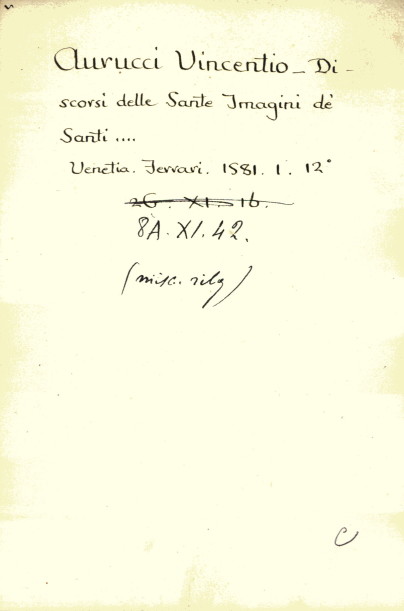 Aurucci Vincentio - Di-
scorsi delle Sante Imagini dè
Santi ....
Venetia. Ferrari. 1581. 1. 12°
26. XI. 16.
8A. XI. 42.
(misc. rileg)
C